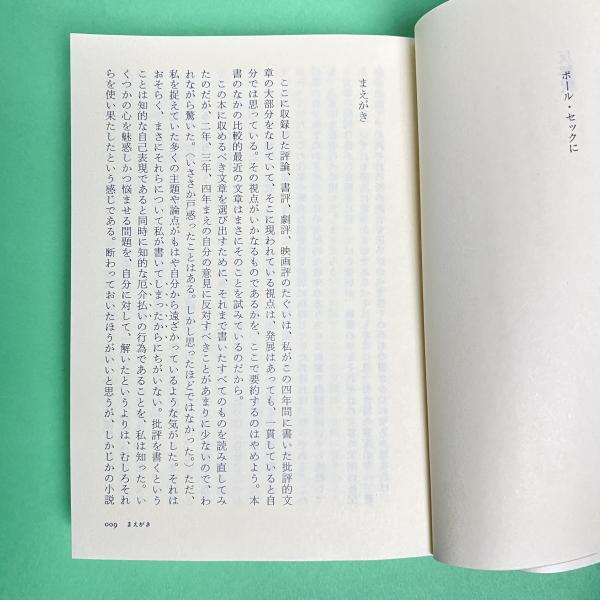 ポール・セックに
まえがき
ここに収録した評論、書評、劇評、映画評のたぐいは、私がこの四年間に書いた批評的文
章の大部分をなしていて、そこに現われている視点は、発展はあっても、一貫していると自
分では思っている。その視点がいかなるものであるかを、ここで要約するのはやめよう。本
書のなかの比較的最近の文章はまさにそのことを試みているのだから。
この本に収めるべき文章を選び出すために、それまで書いたすべてのものを読み直してみ
たのだが、二年、三年、四年まえの自分の意見に反対すべきことがあまりに少ないので、わ
れながら驚いた。（いささか戸惑ったことはある。しかし思ったほどではなかった。）ただ、
私を捉えていた多くの主題や論点がもはや自分から遠ざかっているような気がした。それは
おそらく、まさにそれらについて私が書いてしまったからにちがいない。批評を書くという
ことは知的な自己表現であると同時に知的な厄介払いの行為であることを、私は知った。い
くつかの心を魅惑しかつ悩ませる問題を、自分に対して、解いたというよりは、むしろそれ
らを使い果たしたという感じである。断わっておいたほうがいいと思うが、しかじかの小説
009 まえがき